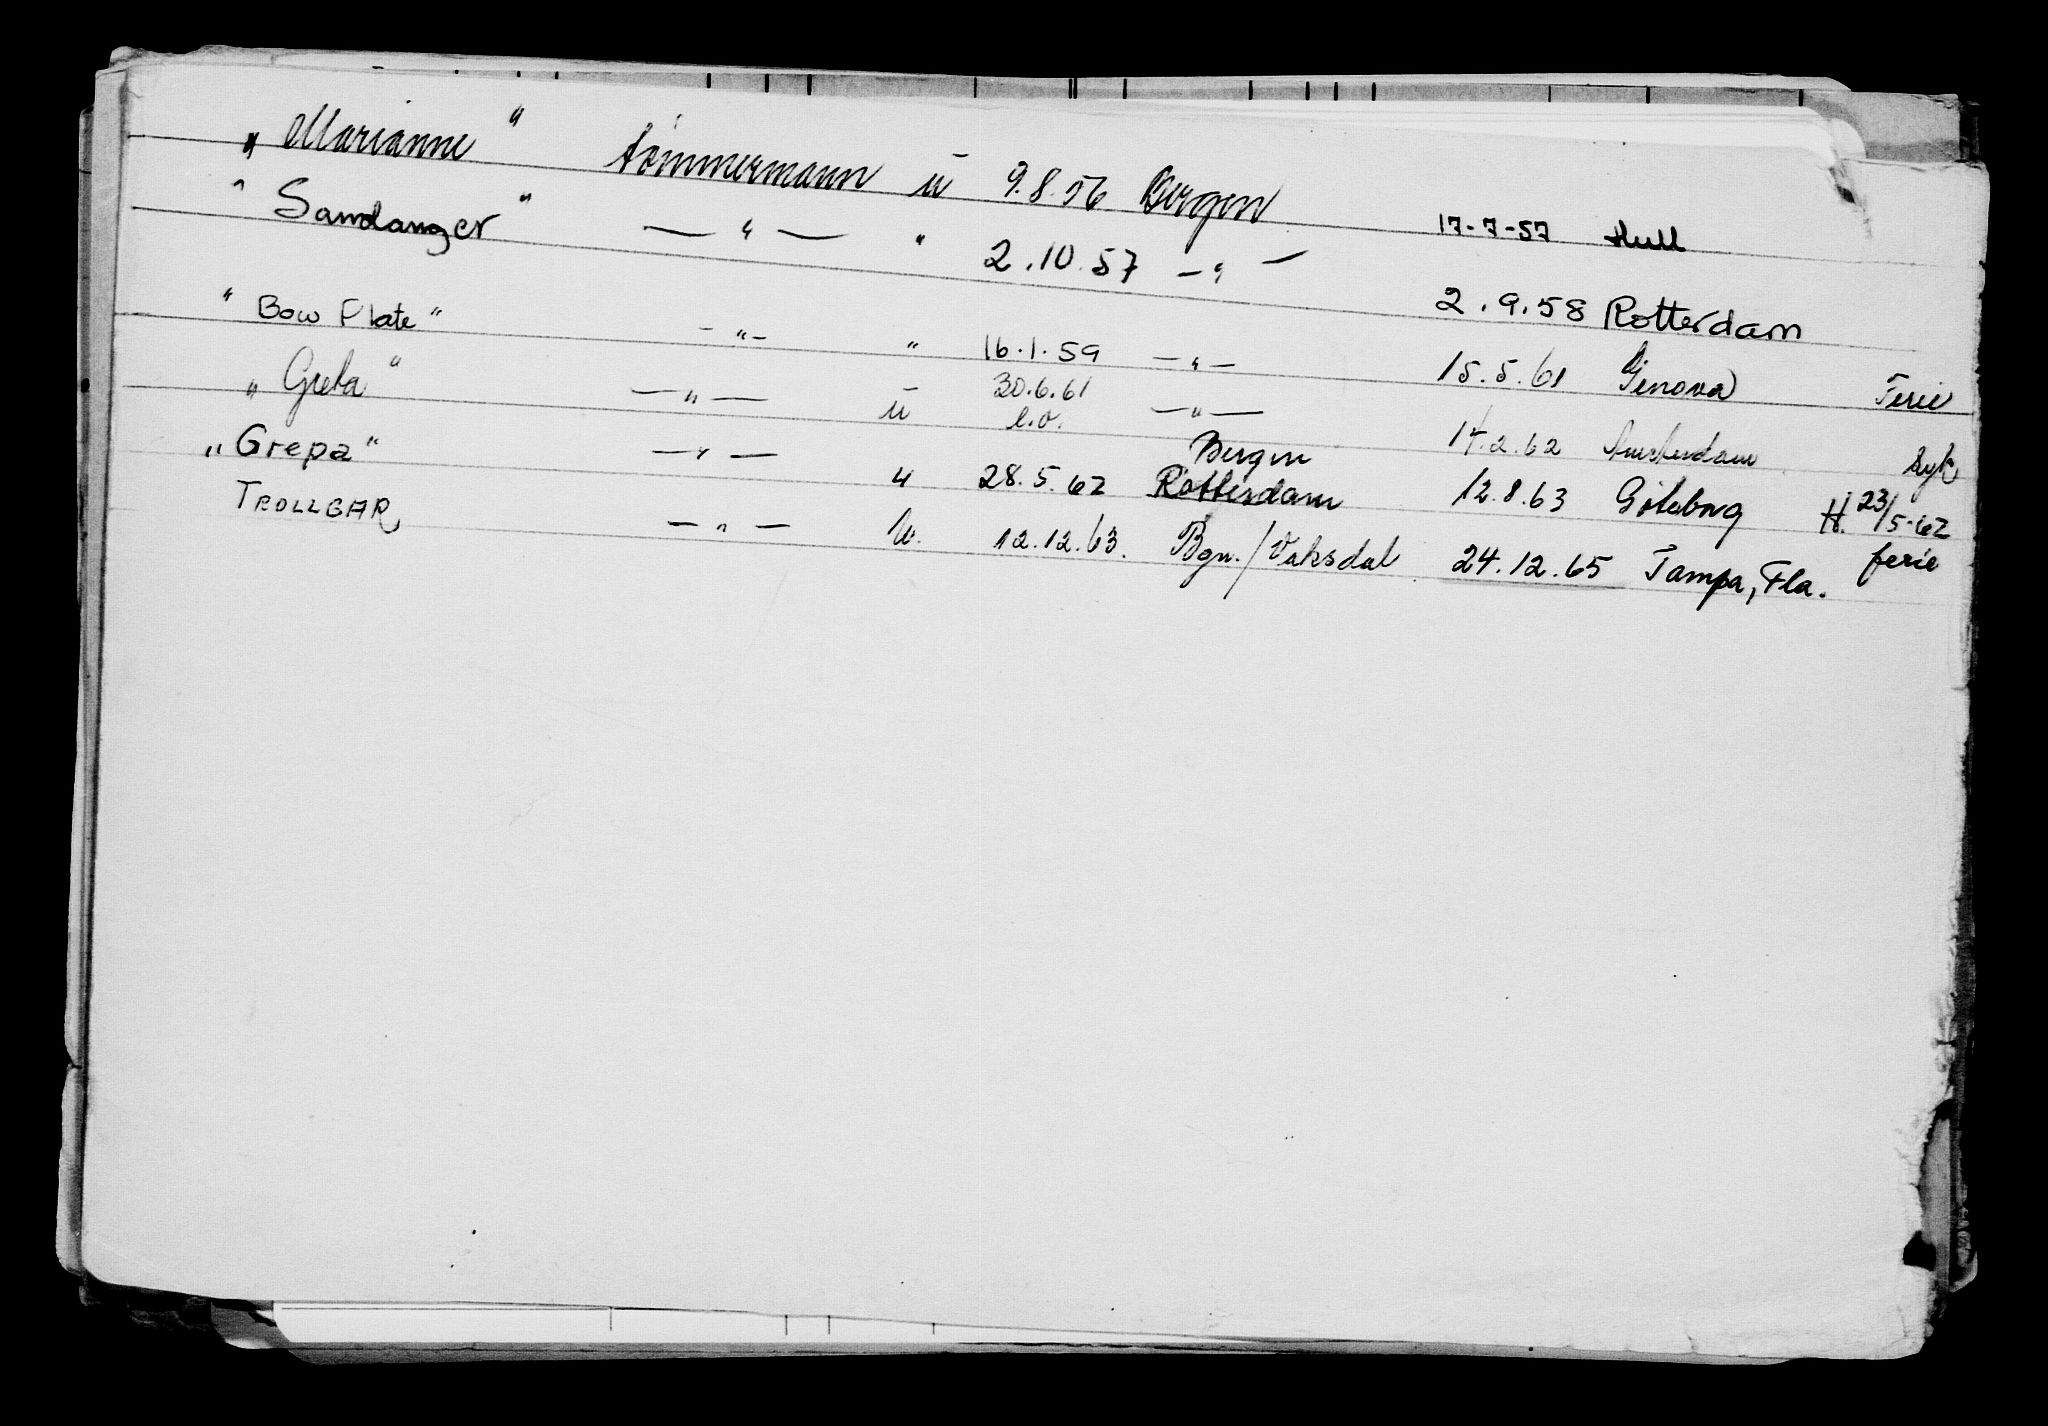 „ Marianne " tømmermann u 9.8.56 Bergen 17-7-57 Hull
" Sandanger " — " — " 2.10.57 — " — 2.9.58 Rotterdam
" Bow Plate " - " - " 16.1.59 — " — 15.5.61 Genova Ferie
„ Greta " — " — u 30.6.61 e.o. — " — 14.2.62 Amsterdam syk
„ Grepa " — " — u 28.5.62 Bergen Rotterdam 12.8.63 Göteborg H. 23/5-62
TROLLGAR — " — u. 12.12.63. Bgn./Vaksdal 24.12.65 Tampa, Fla. ferie